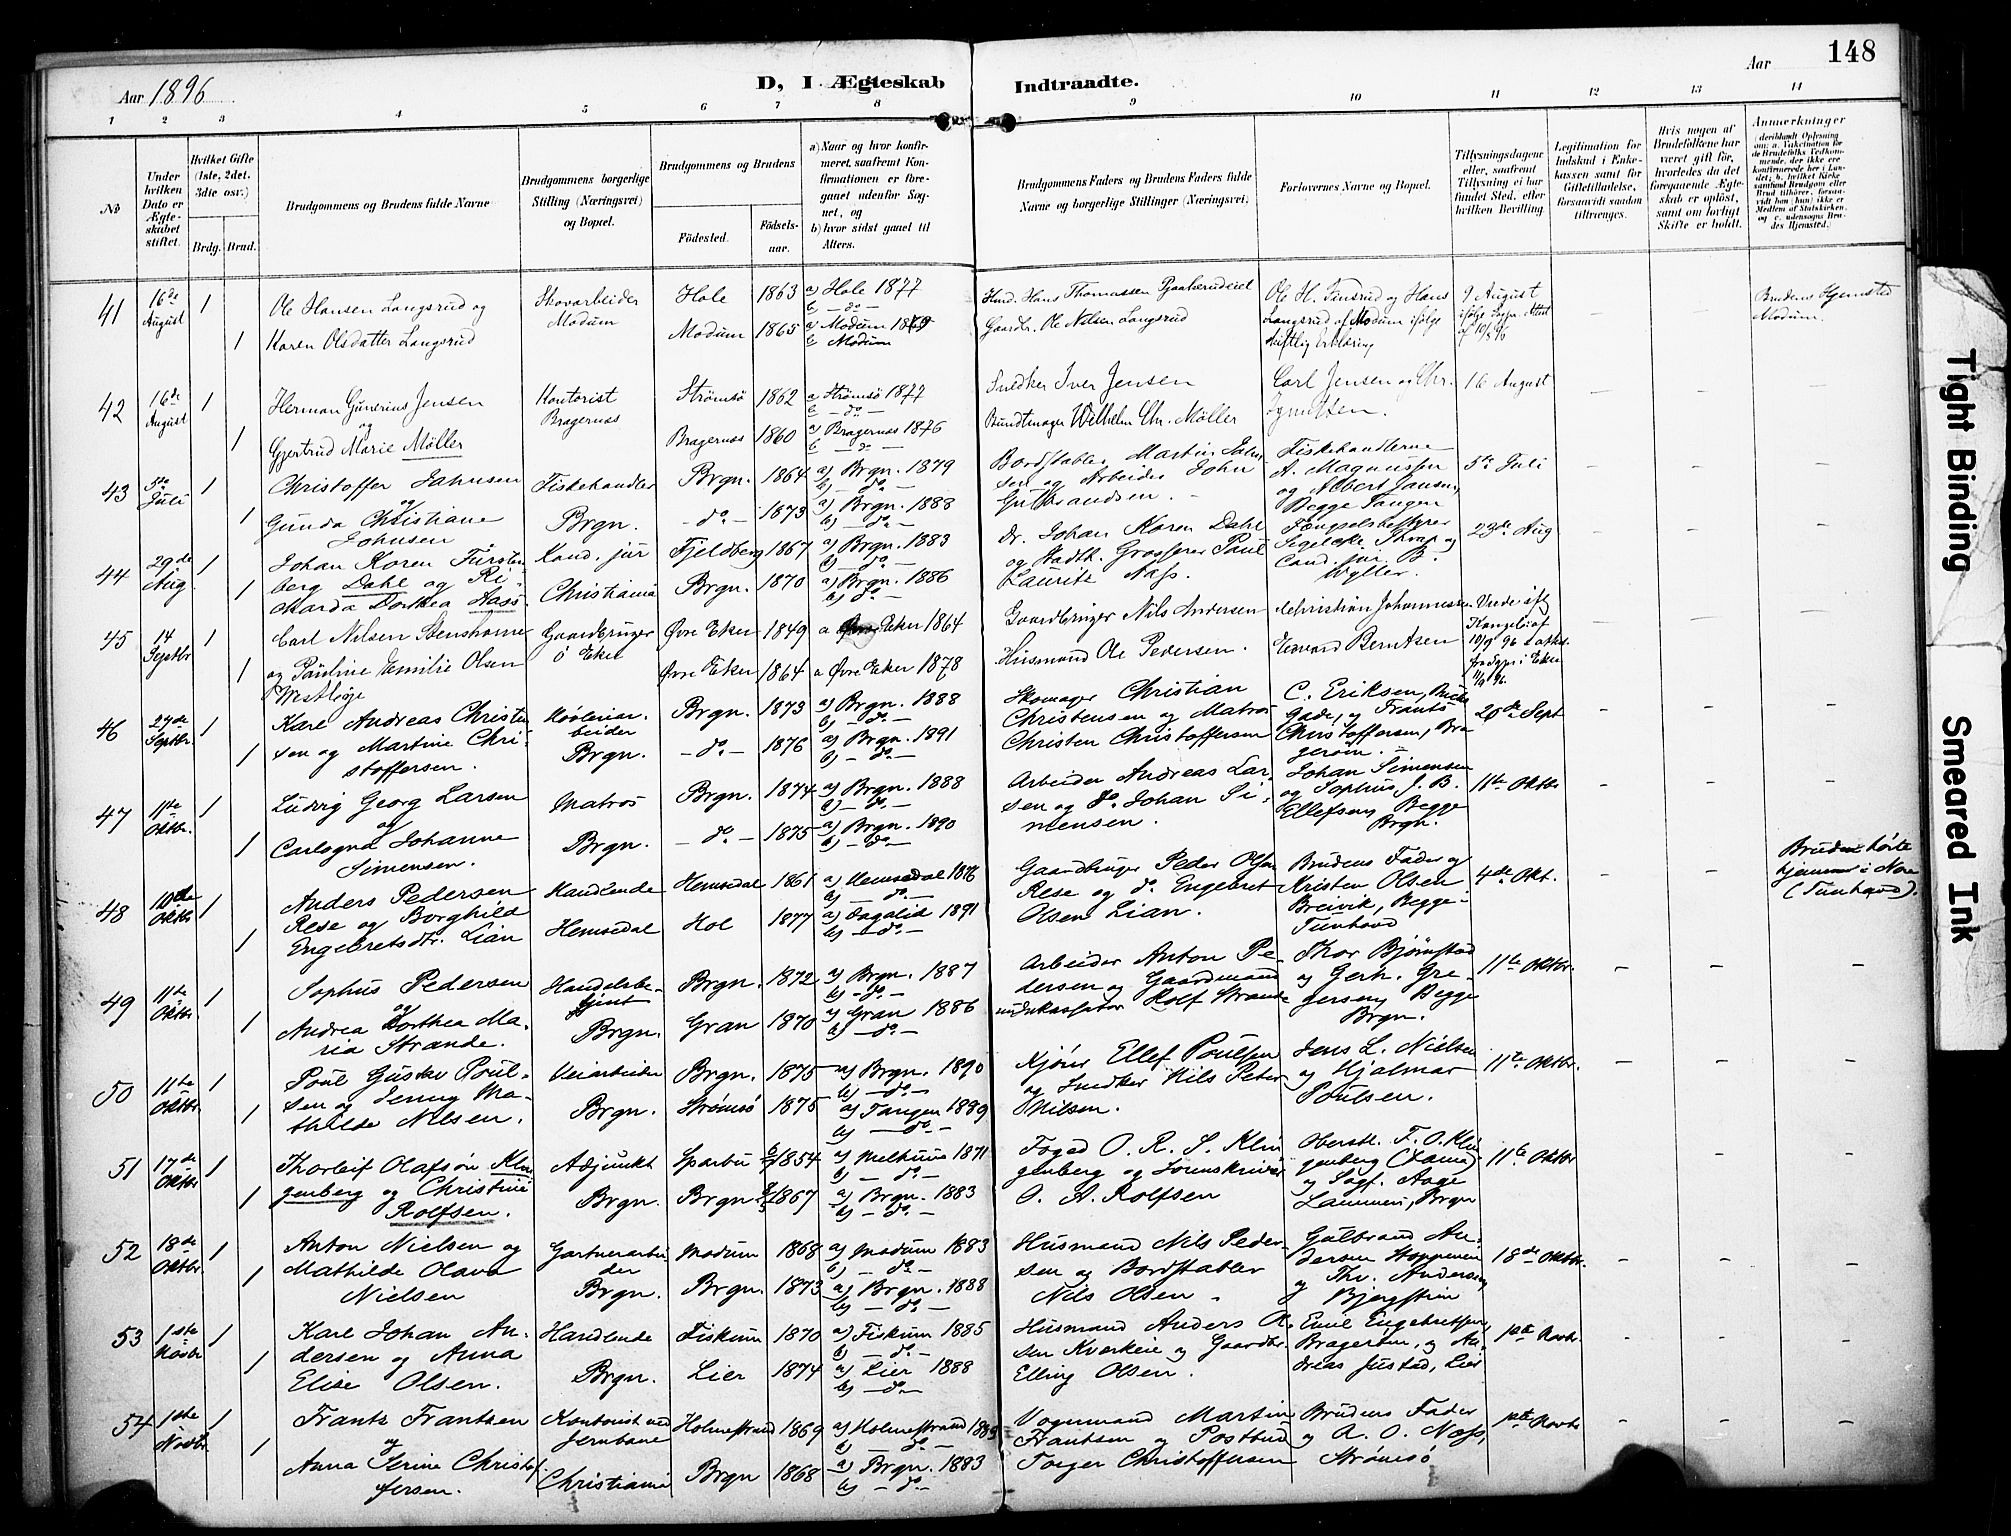 Aar 1896
D, I Ægteskab
Indtraadte.
Aar 148
1 2 3 4 5 6 7 8 9 10 11 12 13 14
No
Under hvilken Dato er Ægteskabet stiftet.
Hvilket Gifte (1ste, 2det. 3dte osv.)
Brdg. Brud.
Brudgommens og Brudens fulde Navne
Brudgommens borgerlige Stilling (Næringsvei) og Bopæl.
Brudgommens og Brudens
Fødested.
Fødselsaar.
a) Naar og hvor konfirmeret, saafremt Konfirmationen er foregaaet udenfor Sognet, og
b) hvor sidst gaaet til Alters.
Brudgommens Faders og Brudens Faders fulde Navne og borgerlige Stillinger (Næringsvei)
Forlovernes Navne og Bopæl.
Tillysningsdagene eller, saafremt Tillysning ei har fundet Sted, efter hvilken Bevilling.
Legitimation for Indskud i Enkekassen samt for Giftetilladelse, forsaavidt saadan tiltrænges.
Hvis nogen af Brudefolkene har været gift før, hvorledes da det foregaaende Ægteskab er opløst, samt om lovligt Skifte er holdt.
Anmærkninger
(deriblandt Oplysning om: a. Vaksination for de Brudefolks Vedkommende, der ikke ere konfirmerede her i Landet; b. hvilket Kirkesamfund Brudgom eller Brud tilhører, forsaavidt han (hun) ikke er Medlem af Statskirken, og c. udensogns Brudes Hjemsted.)
41 16de August 1 Ole Hansen Langsrud og Skovarbeider Hole 1863 a) Hole 1877 Hans Thomassen Ole H. og Hans 9 August Brudens Hjemsted
1 Karen Olsdatter Langsrud Modum Modum 1865 a) Modum b) Modum Gaardbr. Ole Nilsen Langsrud Langsrud af Modum ifølge skriftlig erklæring Modum.
42 16de August 1 Herman Gunerius Jensen Kontorist Strømsø 1862 a) Strømsø 1877 b) - do - Snedker Iver Jensen Carl Jensen og Chr. 16 August
og Bragernæs
1 Gjertrud Marie Møller Bragernæs 1860 a) Bragernæs 1876 b) do - Bundtmager Wilhelm Chr. Møller
43 5te Juli 1 Christoffer Jahnsen Fiskehandler Brgn. 1864 a) Brgn. 1879 b) - do - Bordstabler Martin Jahnsen og Arbeider John Gulbrandsen. Fiskehandlerne A. Magnussen og Albert Jansen, Begge Tangen 5te Juli
og
1 Gunda Christiane Johnsen Brgn. - do - 1873 a) Brgn. 1888 b) - do -
44 29de Aug. 1 Johan Koren Fürstenberg Dahl og Rikarda Dorthea Aass Kand. jur Fjeldberg 1867 a) Brgn. 1883 b) - do - Dr. Johan Koren Dahl og Stadth. Grosserer Paul Lauritz Aass. Fængselsbestyrer og Cand. jur. B. Wyller. 23de Aug
1 Christiania Brgn. 1870 a) Brgn. 1886 b) do -
45 14 Septbr 1 Carl Nilsen Stenshorne Gaardbruger Øvre Eker 1849 a Øvre Eker 1864 Gaardbruger Nils Andersen Christian Johannessen
1 og Pauline Emilie Olsen Westbøje ö Eker Øvre Eker 1864 a Øvre Eker 1878 Husmand Ole Pedersen. Edvard Berntsen
46 27de Septbr. 1 Karl Andreas Christensen og Martine Christoffersen. Høvleriarbeider Brgn. 1873 a) Brgn. 1888 b) - do - Skomager Christian Christensen og Matros Christen Christoffersen C. Eriksen, gade, og Frants Christoffersen, Bragerøen. 20de Sept
1 Brgn. - do - 1876 a) Brgn. 1891 b) - do -
47 11te Oktbr. 1 Ludvig Georg Larsen Matros Brgn. 1874 a) Brgn. 1888 b) - do - Arbeider Andreas Larsen og do. Johan Simensen. Johan Simensen og Sophus J. B. Ellefsen, Begge Brgn. 11te Oktbr
og
1 Carlogna Johanne Simensen. Brgn. - do - 1875 a) Brgn. 1890 b) - do -
48 10de Oktbr. 1 Anders Pedersen Rese og Borghild Engebretsdtr. Lian Handlende Hemsedal 1861 a) Hemsedal 1876 b) - do - Gaardbruger Peder Olsen Rese og do. Engebret Olsen Lian. Brudens Fader og Kristen Olsen Breivik, Begge Tunhovd 4de Okt. Bruden hørte hjemme i Nore (Tunhovd).
1 Hemsedal Hol 1877 a) Dagalid 1891 b) - do -
49 11te Oktbr 1 Sophus Pedersen Handelsbetjent Brgn. 1872 a) Brgn. 1887 b) - do - Arbeider Anton Pedersen og Gaardmand Rolf Strande Thor Bjørnstad og Gerh. Gregersen, Begge Brgn. 11te Oktbr.
og
1 Andrea Dorthea Maria Strande. Brgn. Gran 1870 a) Gran 1886 b) - do -
50 11te Oktbr. 1 Poul Gustav Poulsen og Jenny Mathilde Nilsen. Veiarbeider Brgn. 1875 a) Brgn. 1890 b) - do - Kjører Ellef Poulsen og Snedker Nils Peter Nilsen. Jens L. Nielsen og Hjalmar Poulsen. 11te Oktbr.
1 Brgn. Strømsø 1875 a) Tangen 1889 b) - do -
51 17de Oktbr 1 Thorleif Olafsøn Klingenberg og Christine Rolfsen. Adjunkt Sparbu 1854 a) Melhuus 1871 b) - do - Foged O. R. S. Klingenberg og Sorenskriver O. A. Rolfsen Oberstl. F. O. Klingenberg og Sogf. Aage Lammers, Brgn 11te Oktbr
1 Brgn. Brgn. 1867 a) Brgn. 1883 b) - do -
52 18de Oktbr. 1 Anton Nielsen og Mathilde Olava Nielsen Gartnerarbeider Modum 1868 a) Modum 1883 b) - do - Husmand Nils Pedersen og Bordstabler Nils Olsen Gulbrand Andersen og Thv. Andersen, 18de Oktbr.
1 Brgn. Brgn. 1873 a) Brgn. 1888 b) - do -
53 1ste Novbr 1 Karl Johan Andersen og Anna Elise Olsen. Handlende Fiskum 1870 a) Fiskum 1885 b) - do - Husmand Anders og Gaardbr. Elling Olsen. Emil Engebretsen, Bragerøen, og Andreas Justad, Lier 1ste Novbr
1 Brgn. Lier 1874 a) Lier 1888 b) - do -
54 1ste Novbr. 1 Frantz Frantzen Kontorist ved Jernbane Holmestrand 1869 a) Holmestrand 1885 b) - do - Vognmand Martin Frantsen og Postbud Torger Christoffersen Brudens Fader og A. O. Næss, Strømsø 1ste Novbr
og
1 Anna Serine Christoffersen. Christiania Brgn 1868 a) Brgn. 1883 b) - do -
Tight Binding
Smeared Ink